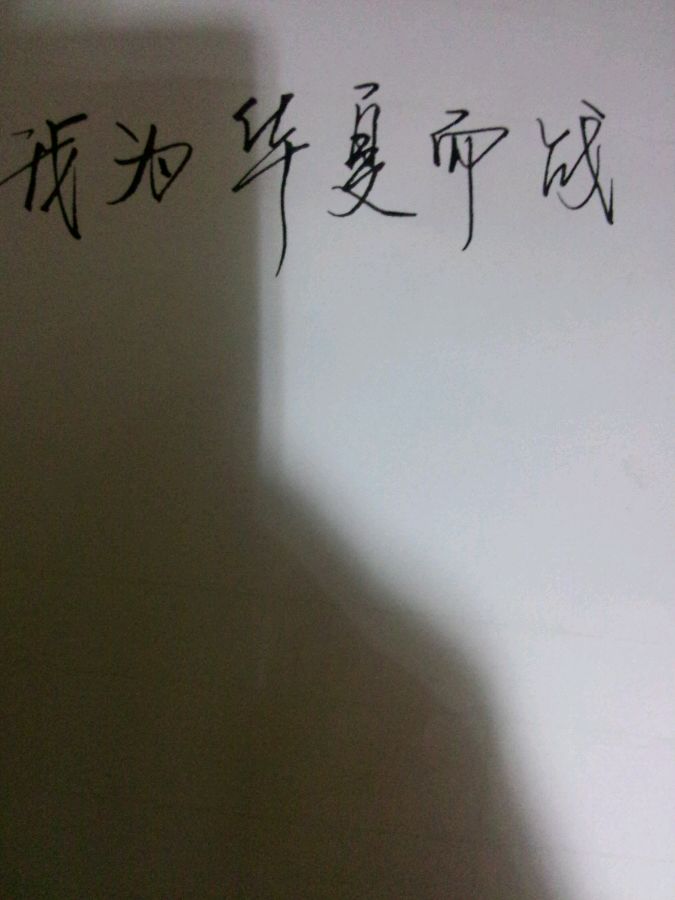 我为华夏而战